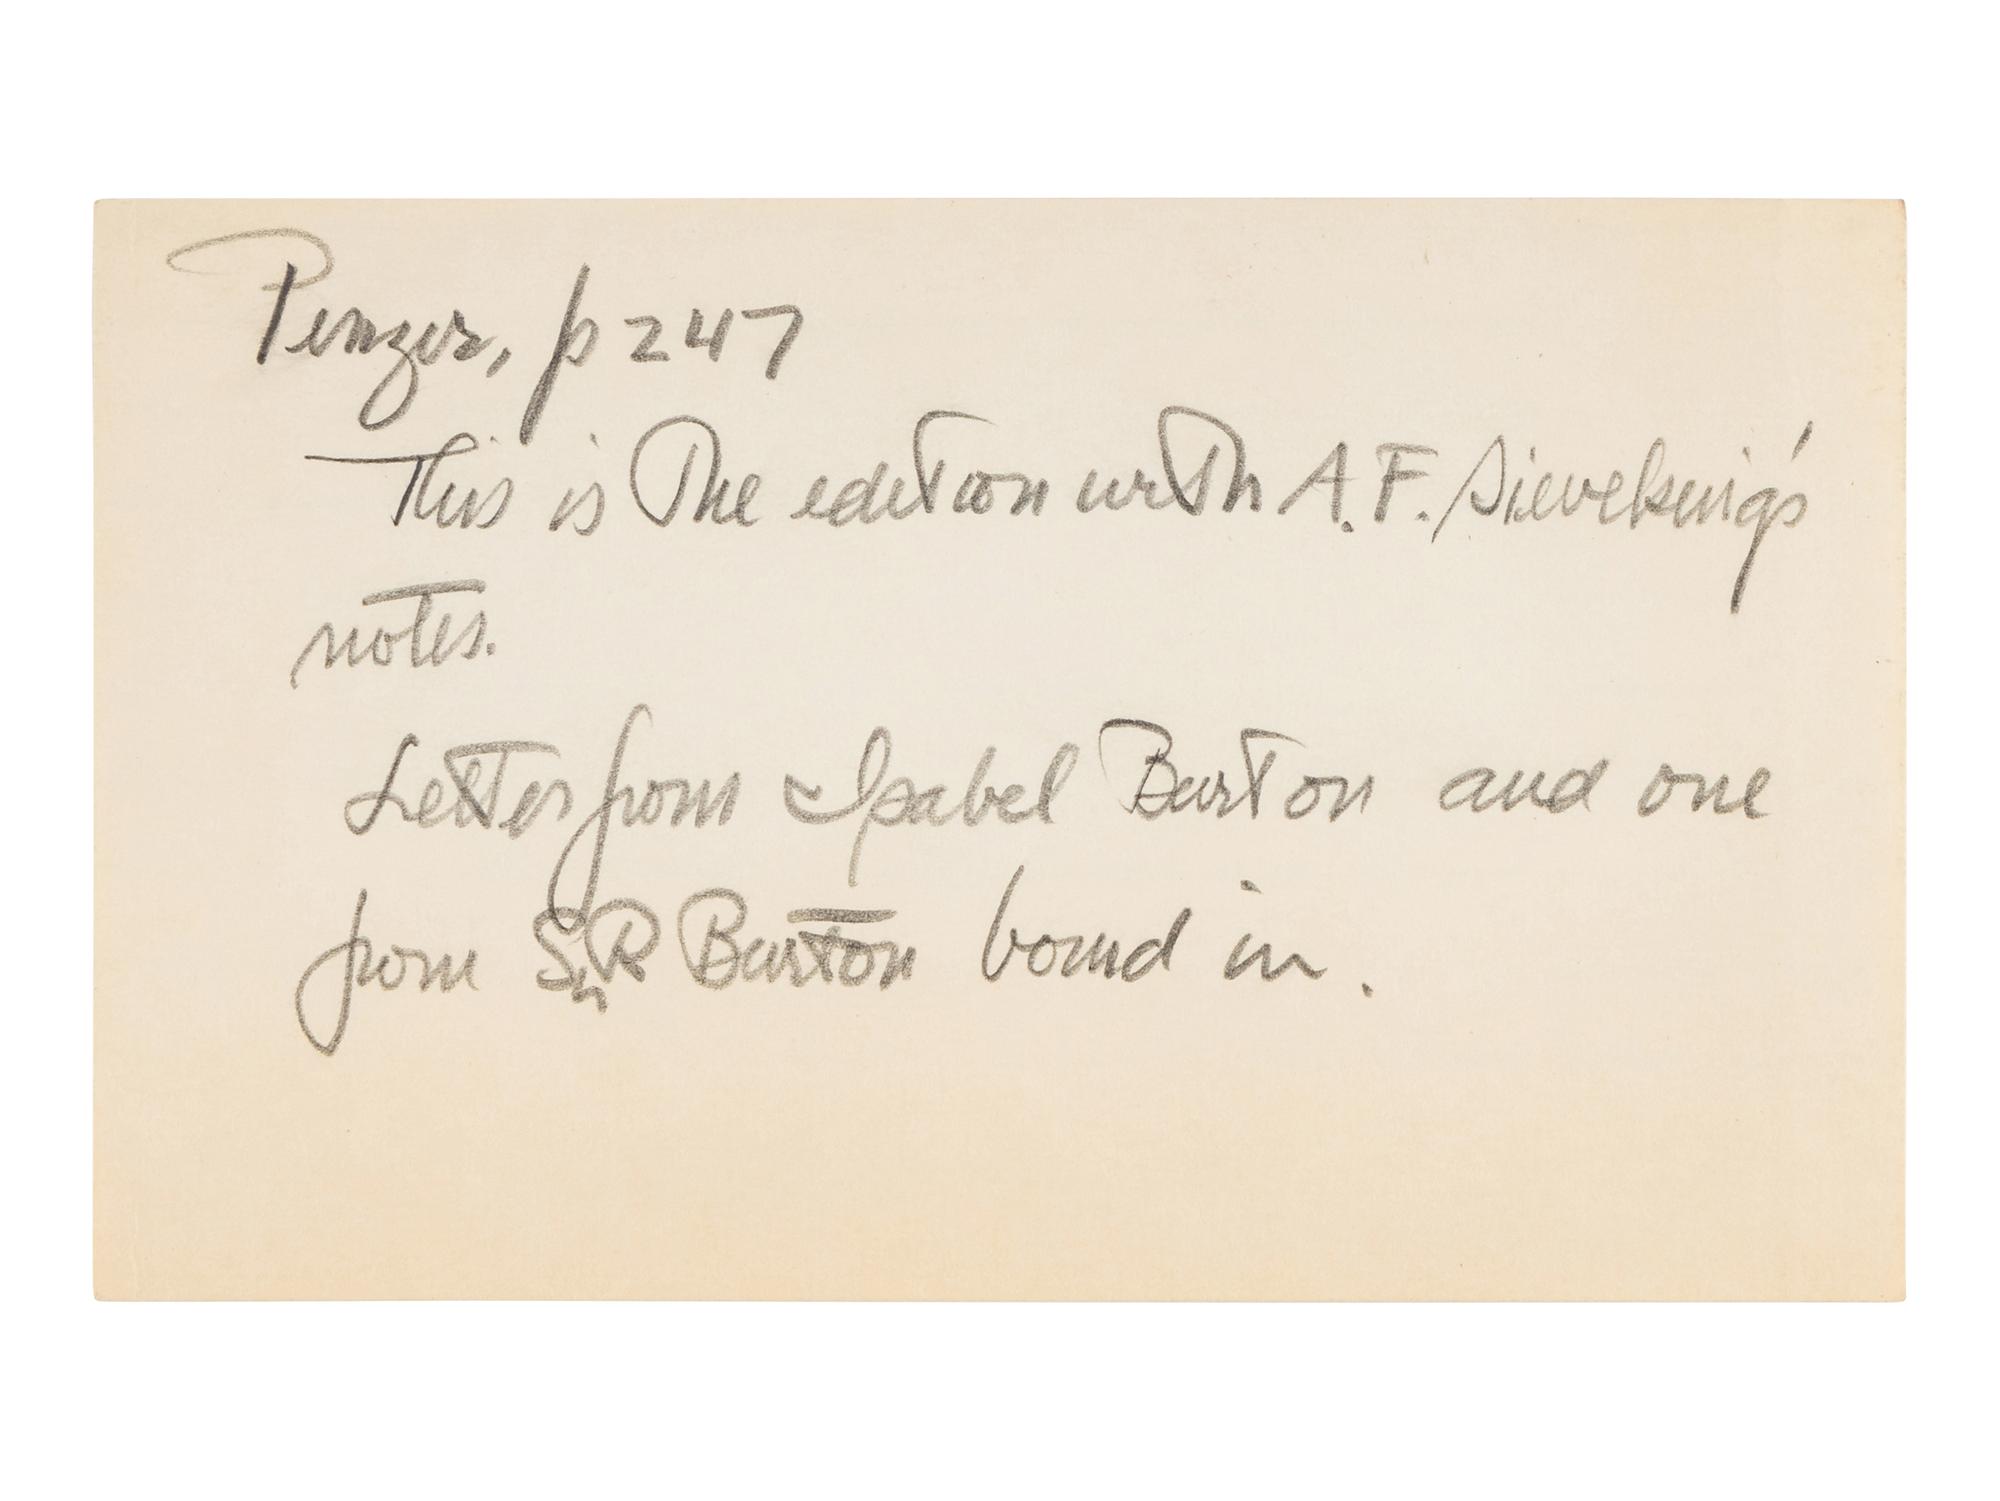 Penzer, p 247
This is The edition with A. F. Sieveking's
notes.
Letter from Isabel Burton and one
from Sir R Burton bound in.